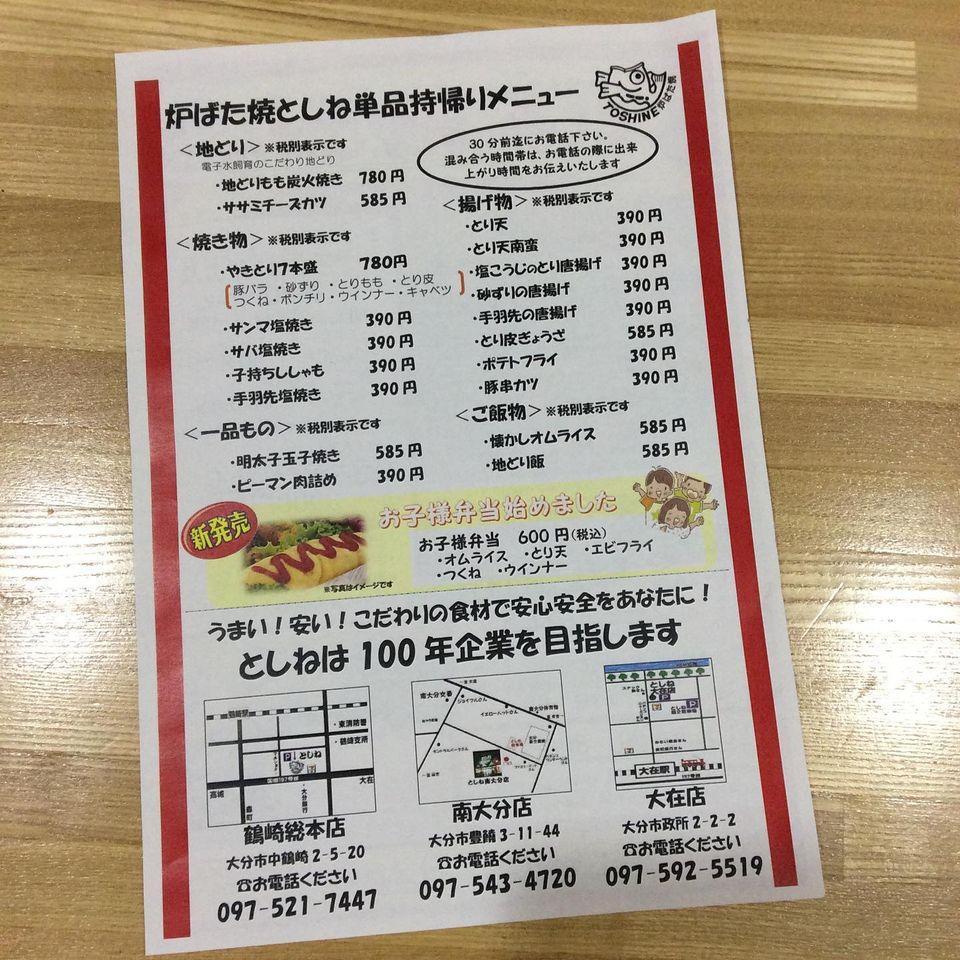 炉ばた焼としね単品持帰りメニュー
TOSHINE
炉ばた焼
30分前迄にお電話下さい。
混み合う時間帯は、お電話の際に出来
上がり時間をお伝えいたします
＜地どり＞※税別表示です
電子水飼育のこだわり地どり
・地どりもも炭火焼き 780円
・ササミチーズカツ 585円
＜焼き物＞※税別表示です
・やきとり7本盛 780円
豚バラ・砂ずり・とりもも・とり皮
つくね・ボンチリ・ウインナー・キャベツ
・サンマ塩焼き 390円
・サバ塩焼き 390円
・子持ちししゃも 390円
・手羽先塩焼き 390円
＜一品もの＞※税別表示です
・明太子玉子焼き 585円
・ピーマン肉詰め 390円
＜揚げ物＞※税別表示です
・とり天 390円
・とり天南蛮 390円
・塩こうじのとり唐揚げ 390円
・砂ずりの唐揚げ 390円
・手羽先の唐揚げ 390円
・とり皮ぎょうざ 585円
・ポテトフライ 390円
・豚串カツ 390円
＜ご飯物＞※税別表示です
・懐かしオムライス 585円
・地どり飯 585円
新発売
お子様弁当始めました
お子様弁当 600円(税込)
・オムライス ・とり天 ・エビフライ
・つくね ・ウインナー
※写真はイメージです
うまい！安い！こだわりの食材で安心安全をあなたに！
としねは100年企業を目指します
鶴崎駅
・東消防署
・鶴崎支所
P としね
国道197号線
高城
大在
・大分銀行
鶴崎総本店
大分市中鶴崎2-5-20
☎お電話ください
097-521-7447
南大分交番
ジョイフルさん
イエローハットさん
南大分体育館
セントラルパークさん
としね南大分店
南大分店
大分市豊饒3-11-44
☎お電話ください
097-543-4720
としね
大在店
P
大在駅
197号線
大在店
大分市政所2-2-2
☎お電話ください
097-592-5519